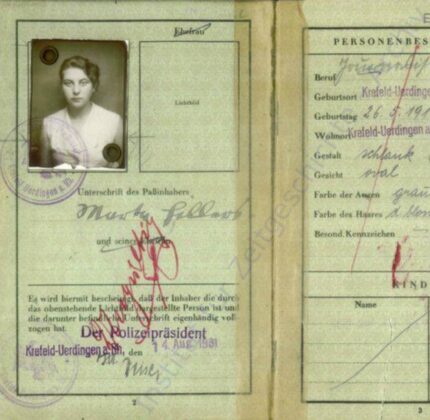 Ehefrau
Lichtbild
Unterschrift des Paßinhabers
Marta Hillers
und seiner Ehefrau
Es wird hiermit bescheinigt, daß der Inhaber die durch
das obenstehende Lichtbild dargestellte Person ist und
die darunter befindliche Unterschrift eigenhändig voll-
zogen hat.
Der Polizeipräsident
Krefeld-Uerdingen a. Rh., den
14. Aug. 1931
2
PERSONENBES
Beruf
Geburtsort Krefeld-Uerdinge
Geburtstag 26. 5. 191
Wohnort Krefeld-Uerdingen a
Gestalt schlank
Gesicht oval
Farbe der Augen grau
Farbe des Haares d. blon
Besond. Kennzeichen
KIND
Name
3